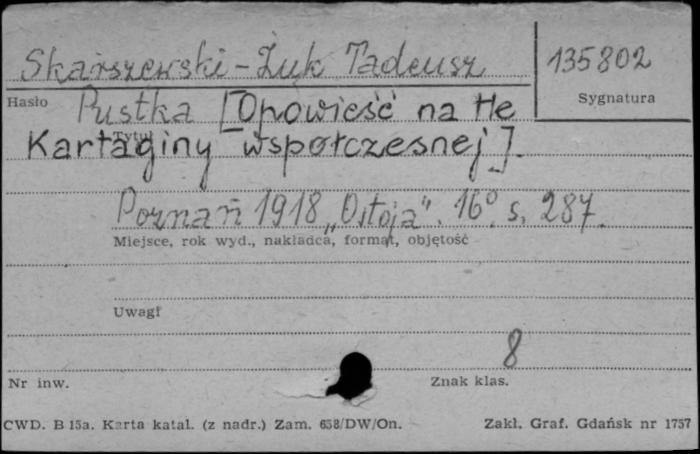 Skarszewski-Żuk Tadeusz 135802
Hasło Sygnatura
Pustka [Opowieść na tle
Tytuł
Kartaginy współczesnej].
Poznań 1918 „Ostoja". 16° s. 287.
Miejsce, rok wyd., nakładca, format, objętość
Uwagi
8
Nr inw. Znak klas.
CWD. B 15a. Karta katal. (z nadr.) Zam. 658/DW/On. Zakł. Graf. Gdańsk nr 1757